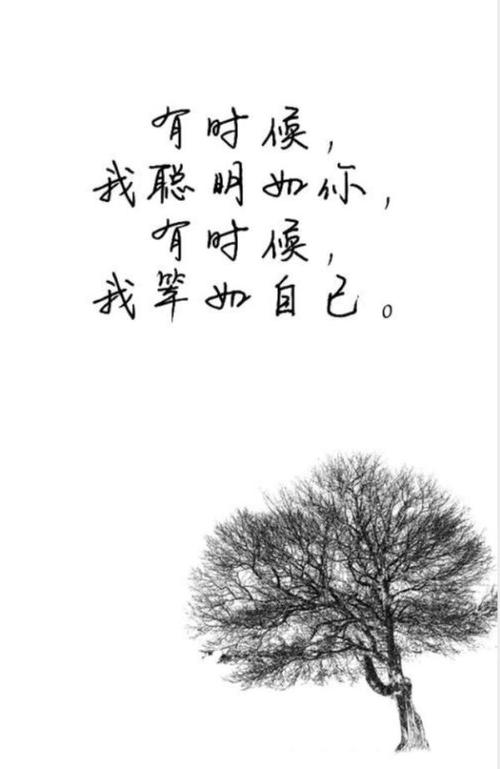 有时候，
我聪明如你，
有时候，
我笨如自己。